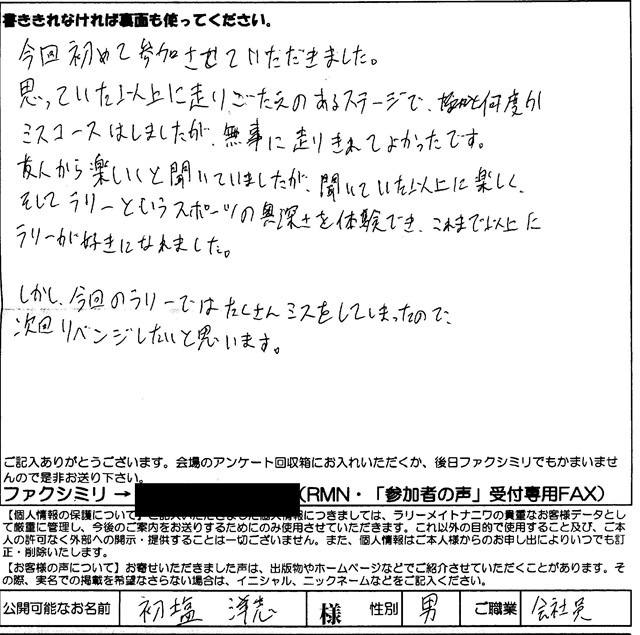 書ききれなければ裏面も使ってください。
今回初めて参加させていただきました。
思っていた以上に走りごたえのあるステージで、何度か
ミスコースはしましたが、無事に走りきれてよかったです。
友人から楽しいと聞いていましたが、聞いていた以上に楽しく、
そしてラリーというスポーツの奥深さを体験でき、これまで以上に
ラリーが好きになれました。
しかし、今回のラリーではたくさんミスをしてしまったので、
次回リベンジしたいと思います。
ご記入ありがとうございます。会場のアンケート回収箱にお入れいただくか、後日ファクシミリでもかまいませ
んので是非お送り下さい。
ファクシミリ → (RMN・「参加者の声」受付専用FAX)
【個人情報の保護について】ご記入いただきました個人情報につきましては、ラリーメイトナニワの貴重なお客様データとし
て厳重に管理し、今後のご案内をお送りするためにのみ使用させていただきます。これ以外の目的で使用すること及び、ご本
人の許可なく外部への開示・提供することは一切ございません。また、個人情報はご本人様からのお申し出によりいつでも訂
正・削除いたします。
【お客様の声について】お寄せいただきました声は、出版物やホームページなどでご紹介させていただくことがあります。そ
の際、実名での掲載を希望なさらない場合は、イニシャル、ニックネームなどをご記入ください。
公開可能なお名前 初塩 洋志 様 性別 男 ご職業 会社員